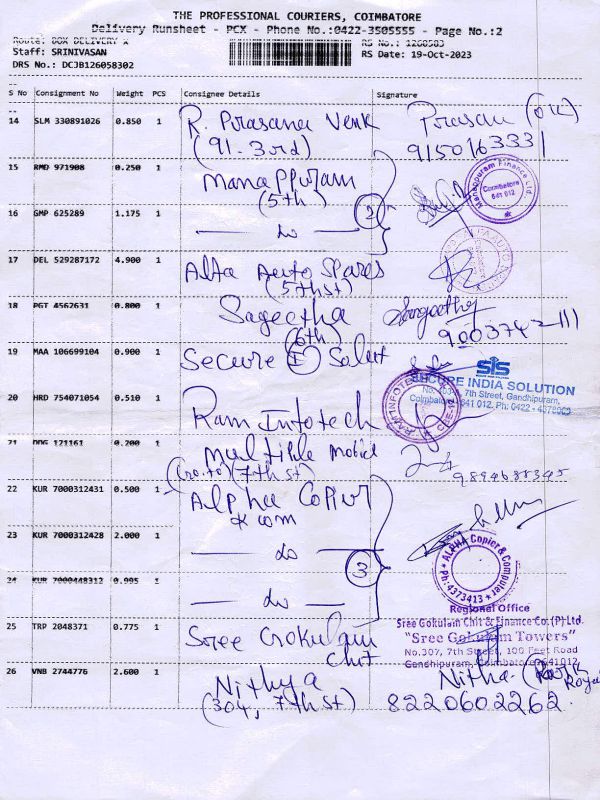 THE PROFESSIONAL COURIERS, COIMBATORE
Delivery Runsheet - PCX - Phone No.:0422-3505555 - Page No.:2
Route: BOX DELIVERY X
RS No.: 1260583
Staff: SRINIVASAN
RS Date: 19-Oct-2023
DRS No.: DCJB126058302
S No Consignment No Weight PCS Consignee Details Signature
14 SLM 330891026 0.850 1 R. Prasana Venk Prasan
(91. 3rd) 9150163331
15 RMD 971908 0.250 1 Manappuram
(5th)
Manappuram Finance Ltd.
Coimbatore
641 012
16 GMP 625289 1.175 1 do 2
17 DEL 529287172 4.900 1 Alta Auto Spares
(5th st)
18 PGT 4562631 0.800 1 Sageetha Sangeetha
(6th) 9003742111
19 MAA 106699104 0.900 1 Secure I Solut
SIS
SECURE INDIA SOLUTION
7th Street, Gandhipuram,
Coimbatore 641 012. Ph: 0422 - 4378969
20 HRD 754071054 0.510 1 Ram Infotech
RAM INFOTECH
21 DDG 121161 0.200 1 Multiple Mobil
7th st) 9894688345
22 KUR 7000312431 0.500 1 Alpha Copier
& com
23 KUR 7000312428 2.000 1 do 3
ALPHA Copier & Computer
Ph: 4373413
24 KUR 7000448312 0.995 1 do
25 TRP 2048371 0.775 1 Sree Gokulam
Chit
Regional Office
Sree Gokulam Chit & Finance Co.(P) Ltd.
"Sree Gokulam Towers"
No.307, 7th Street, 100 Feet Road
Gandhipuram, Coimbatore-641012
26 VNB 2744776 2.600 1 Nithya Nitha
(304, 7th st) 8220602262